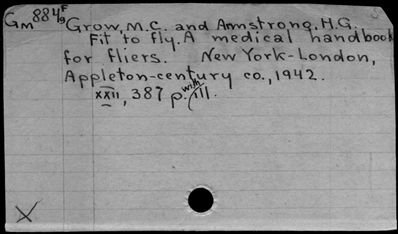 Gm 884F9 Grow, M.C. and Armstrong, H.G.
Fit to fly. A medical handbook
for fliers. New York-London,
Appleton-century co., 1942.
xxii, 387 p. with ill.
X